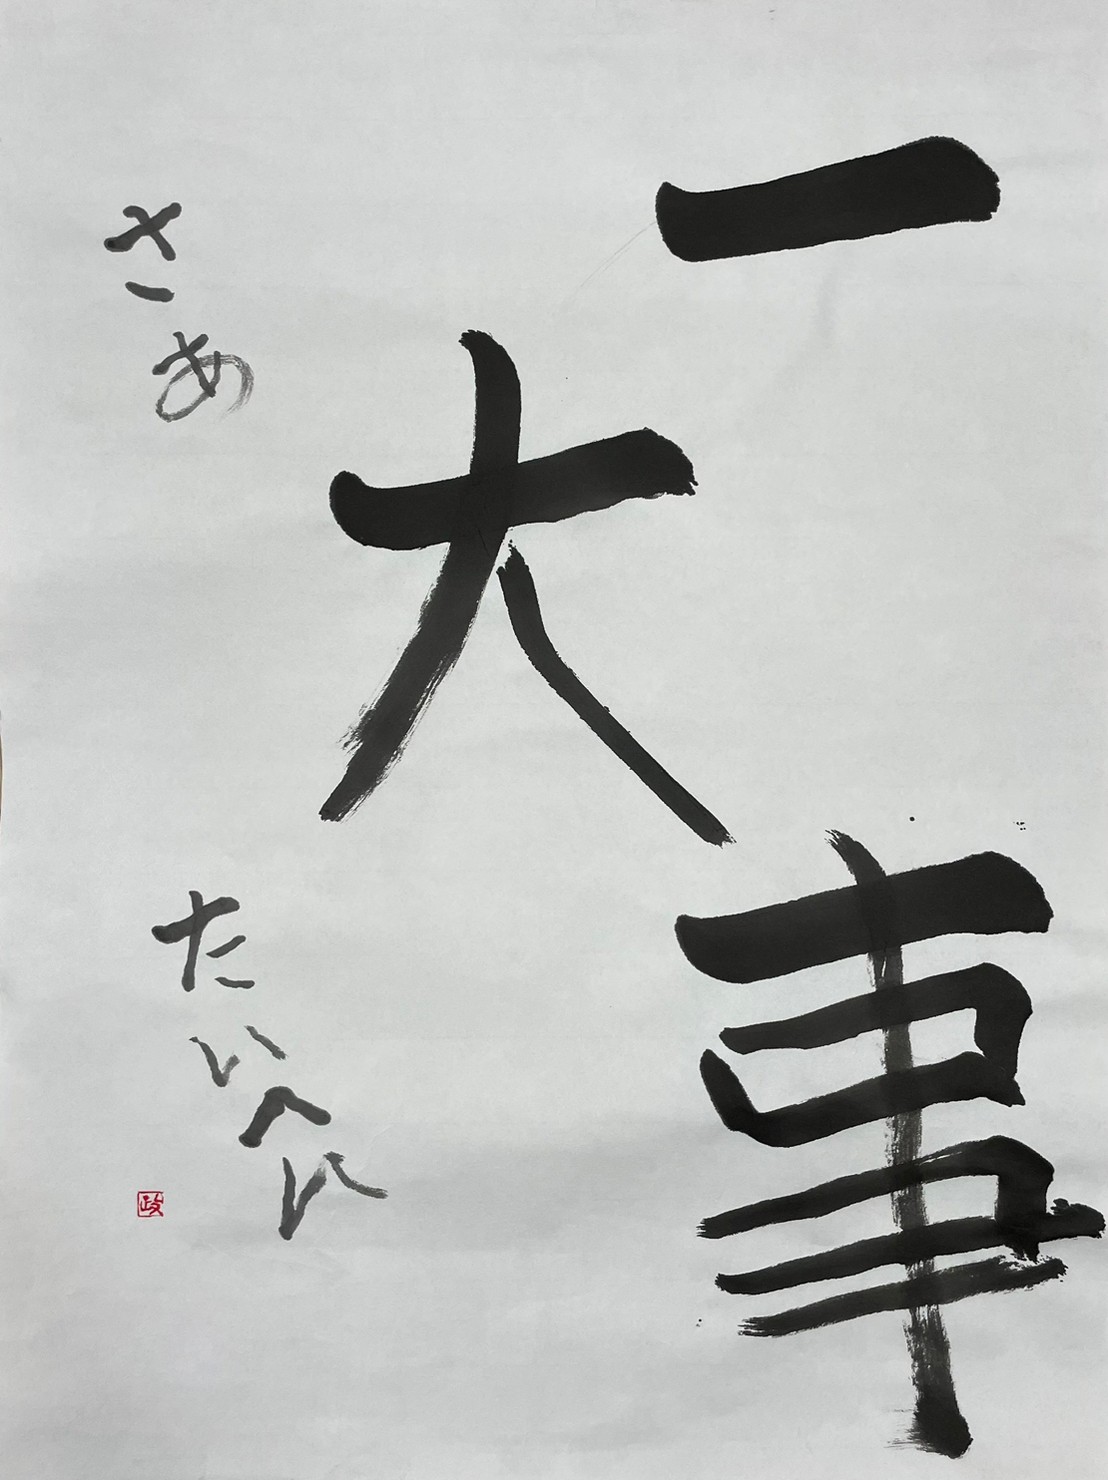 一大事
さあ
たいへい
政